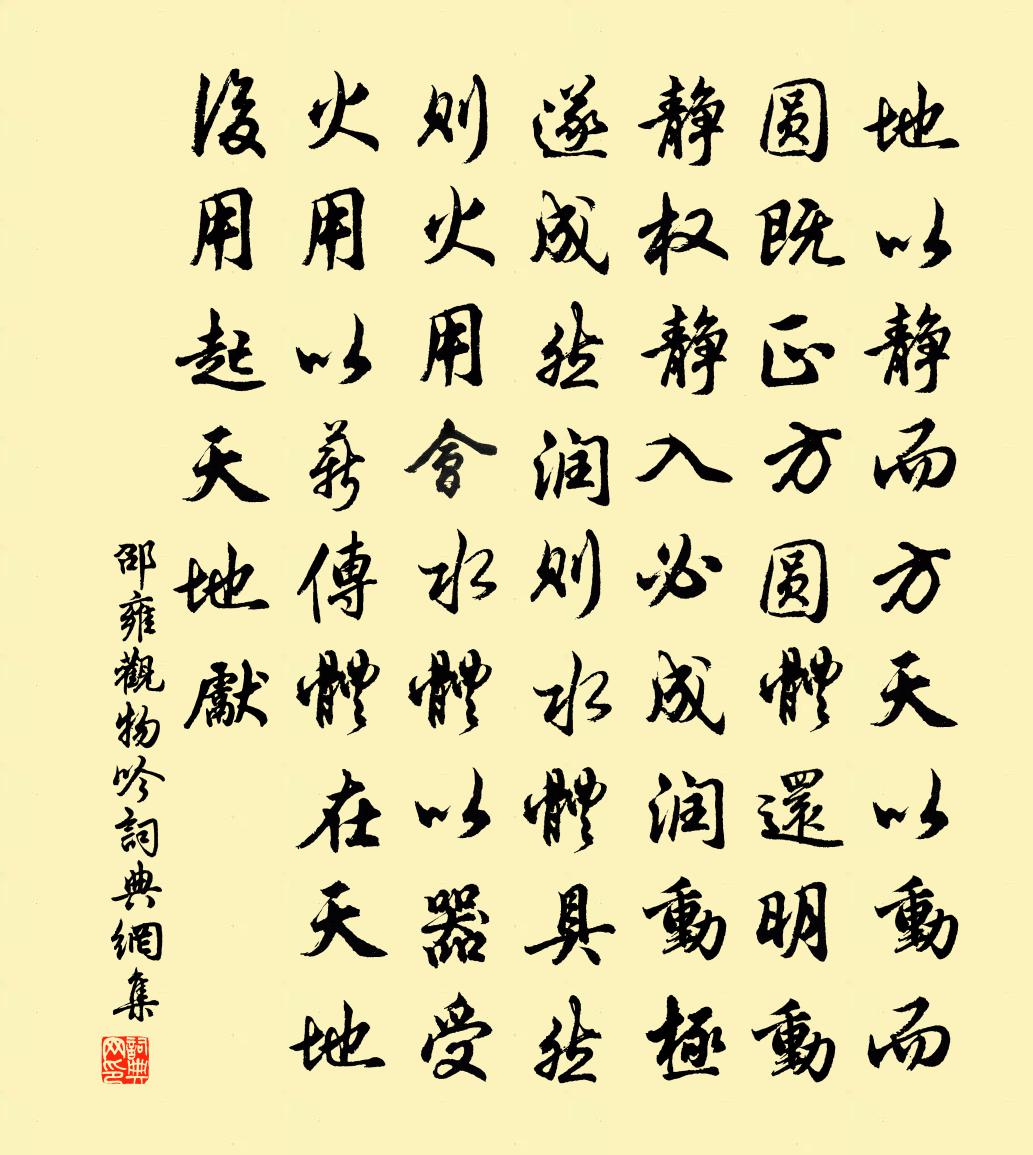 地以静而方天以動而
圓既正方圓體還明動
静权静入必成润動極
遂成然润则水體具然
则火用會水體以器受
火用以薪傳體在天地
後用起天地獻
邵雍觀物吟詞典網集
詞典网印